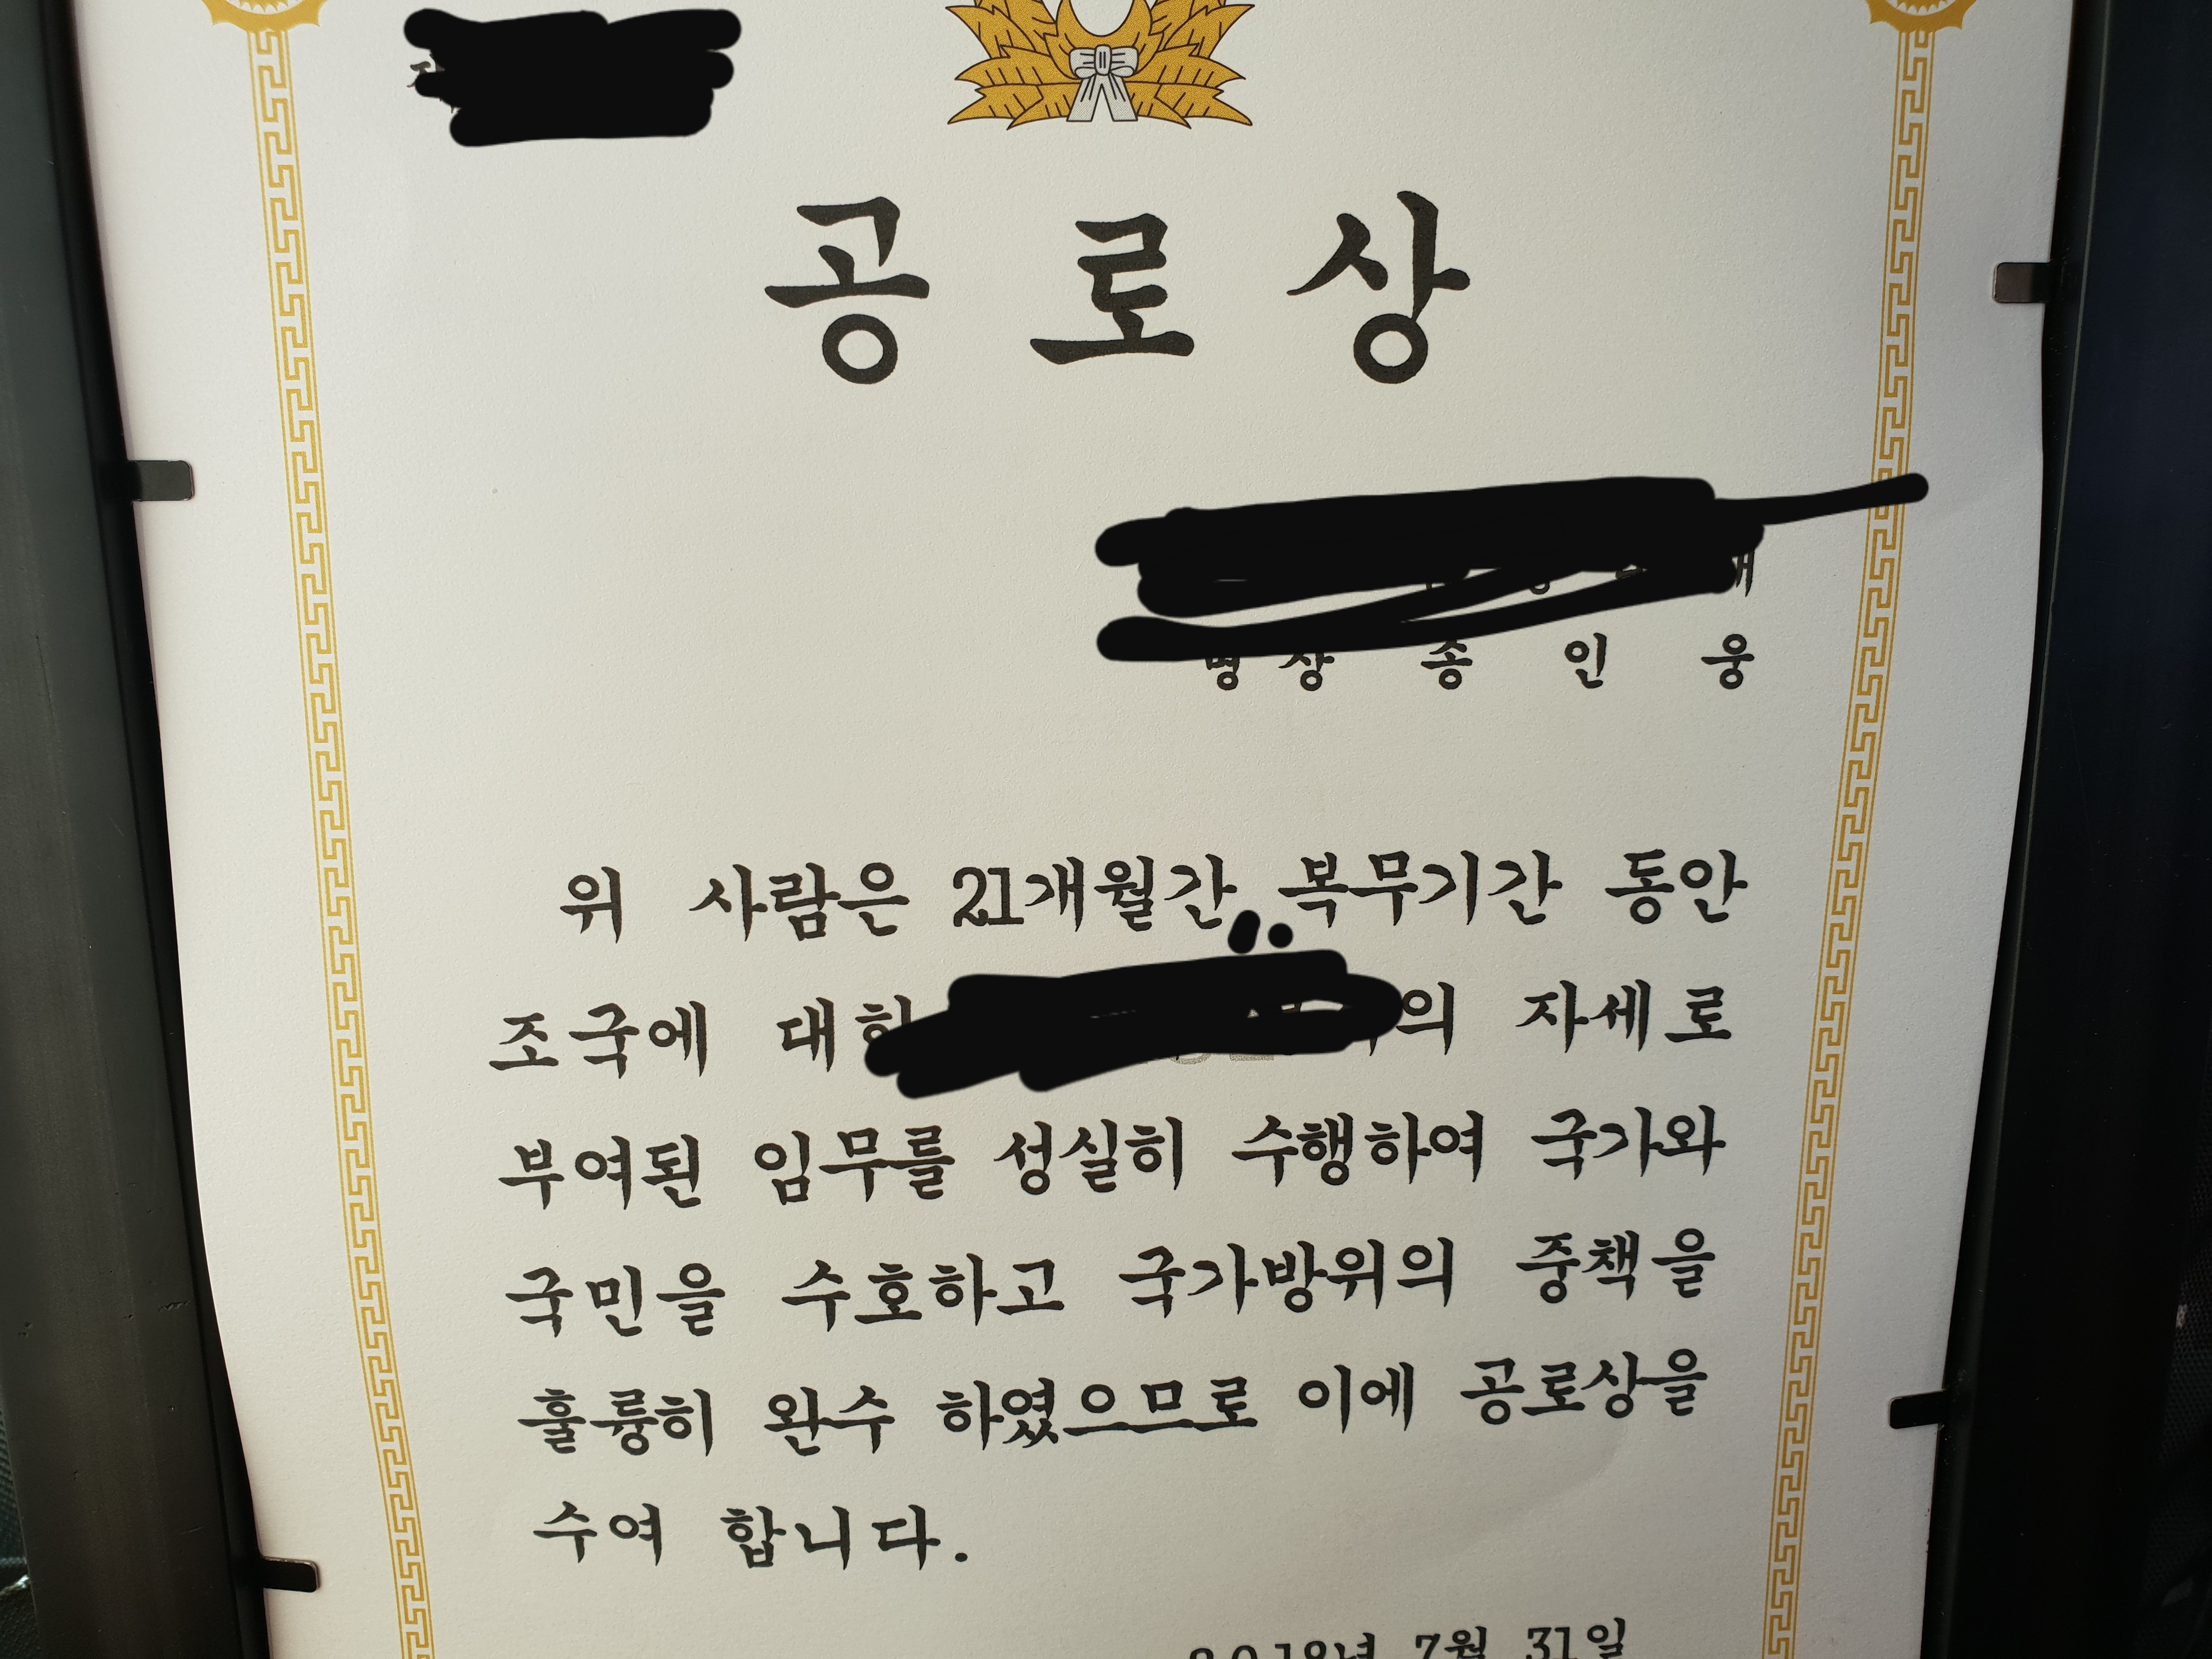 공 로 상
병 장 송 인 웅
위 사람은 21개월간 복무기간 동안
조국에 대한 의 자세로
부여된 임무를 성실히 수행하여 국가와
국민을 수호하고 국가방위의 중책을
훌륭히 완수 하였으므로 이에 공로상을
수여 합니다.
2018년 7월 31일